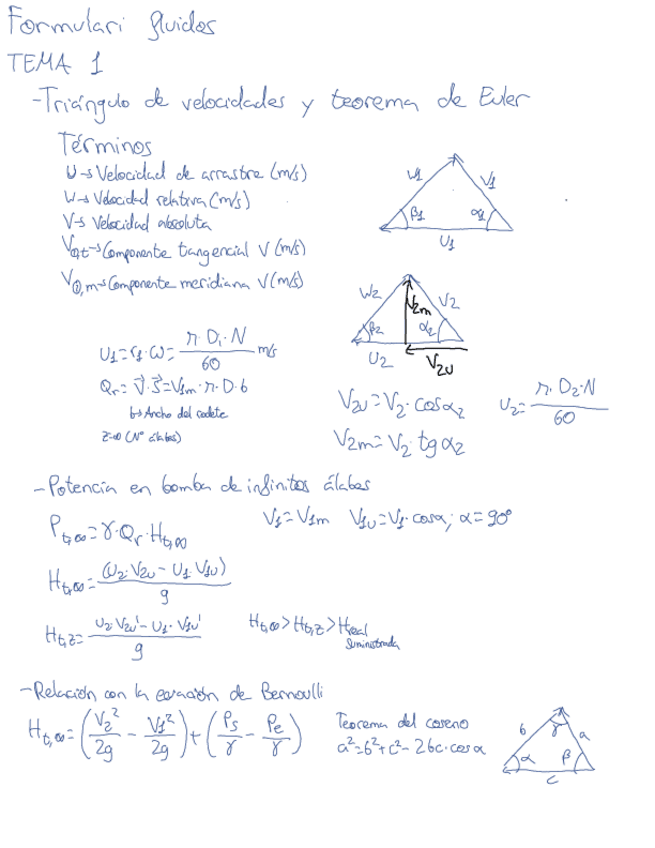 Formulari fluidos
TEMA 1
-Triángulo de velocidades y teorema de Euler
Términos
U→Velocidad de arrastre (m/s)
W→Velocidad relativa (m/s)
V→Velocidad absoluta
V₍₎,t→Componente tangencial V (m/s)
V₍₎,m→Componente meridiana V (m/s)
W1 V1
β1 α1
U1
W2 V2m V2
β2 α2
U2 V2U
U1=r1·ω=π·D1·N/60 m/s
Qr=V⃗·S⃗=V1m·π·D·b
b→Ancho del rodete
z→∞ (Nº álabes)
V2U=V2·cosα2 U2=π·D2·N/60
V2m=V2·tgα2
-Potencia en bomba de infinitos álabes
Pt,∞=γ·Qr·Ht,∞ V1=V1m V1U=V1·cosα; α=90º
Ht,∞=(U2·V2U-U1·V1U)/g
Ht,z=U2·V2U'-U1·V1U'/g Ht,∞>Ht,z>Hreal
Suministrada
-Relación con la ecuación de Bernoulli
Ht,∞=(V2²/2g-V1²/2g)+(Ps/γ-Pe/γ)
Teorema del coseno
a²=b²+c²-2bc·cosα
b γ a
α β
c